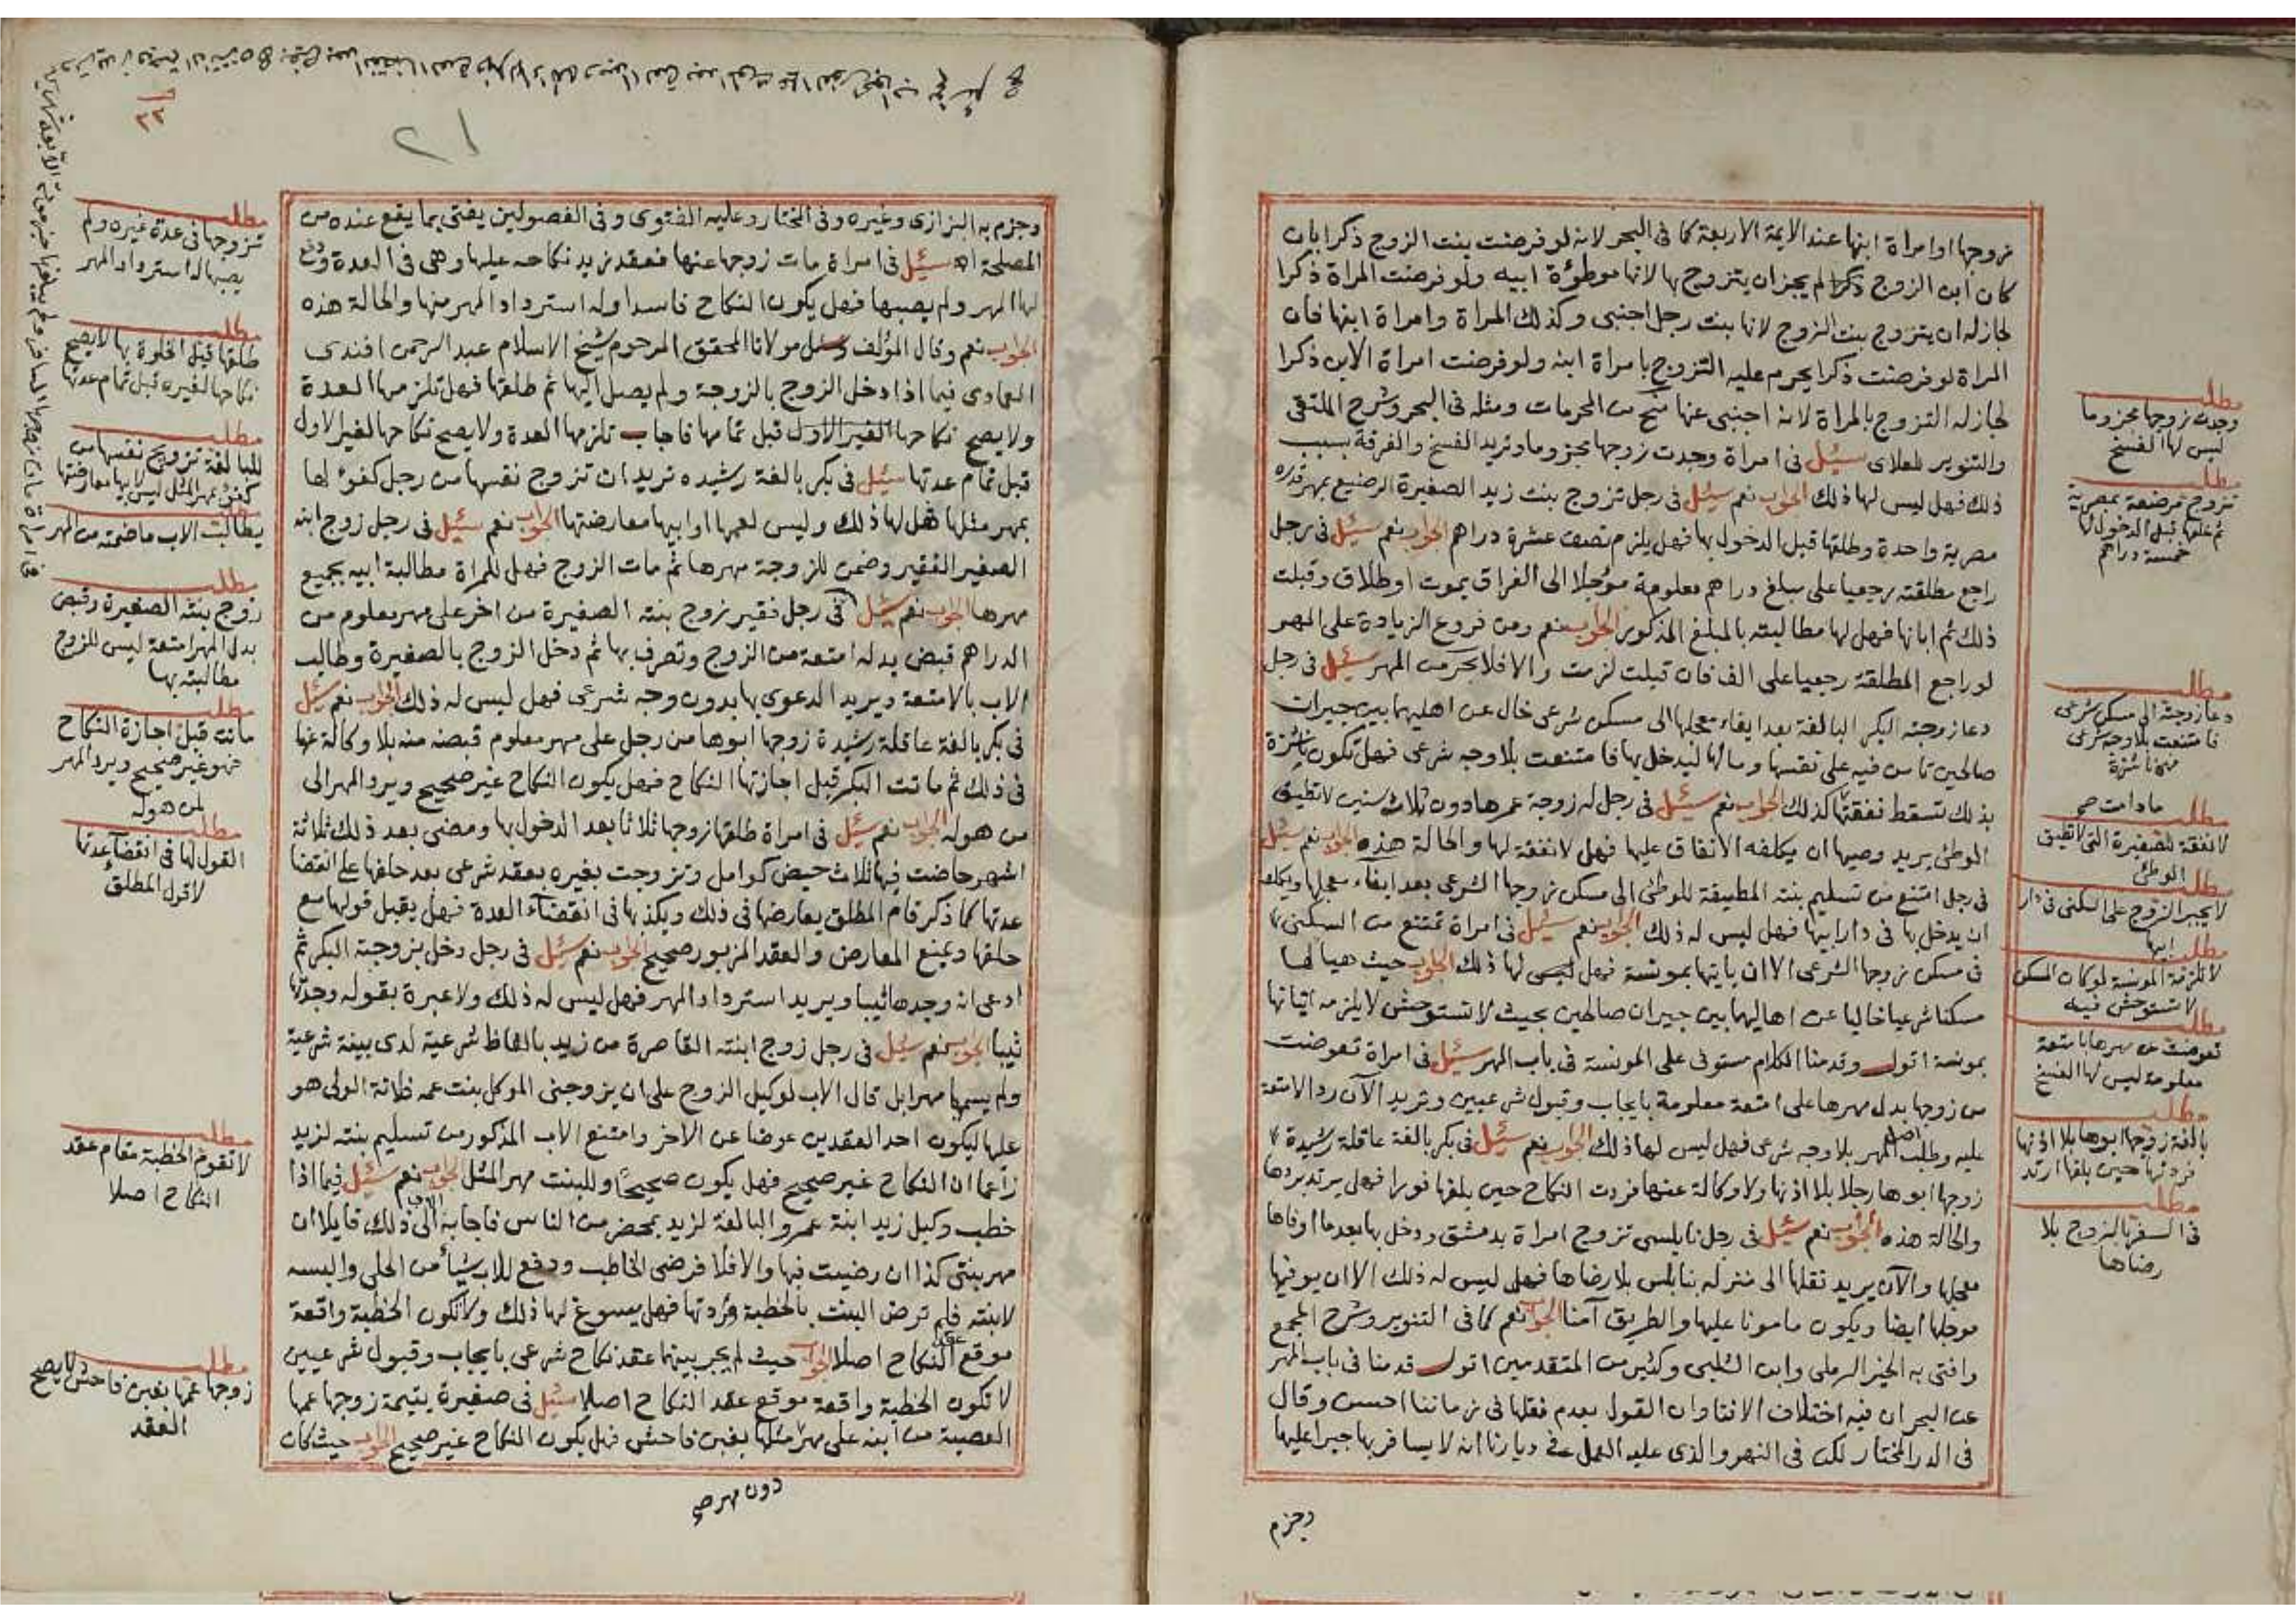 زوجها او امراة ابنها عند الايمة الاربعة كما فى البحر لانه لو فرضت بنت الزوج ذكرا بان
كان ابن الزوج ذكرا لم يجز ان يتزوج بها لانها موطوءة ابيه ولو فرضت المراة ذكرا
لجاز له ان يتزوج بنت الزوج لانها بنت رجل اجنبى وكذلك المراة وامراة ابنها فان
المراة لو فرضت ذكرا يحرم عليه التزوج بامراة ابنه ولو فرضت امراة الابن ذكرا
لجاز له التزوج بالمراة لانه اجنبى عنها منح من المحرمات ومثله فى البحر وشرح الملتقى
والتنوير للعلاى سئل فى امراة وجدت زوجها مجزوما وتريد الفسخ والفرقة بسبب
ذلك فهل ليس لها ذلك الجواب نعم سئل فى رجل تزوج بنت زيد الصغيرة الرضيع بمهر قدره
مصرية واحدة وطلقها قبل الدخول بها فهل يلزم نصف عشرة دراهم الجواب نعم سئل فى رجل
راجع مطلقته رجعيا على مبلغ دراهم معلومة مؤجلا الى الفراق بموت او طلاق وقبلت
ذلك ثم ابانها فهل لها مطالبته بالمبلغ المذكور الجواب نعم ومن فروع الزيادة على المهر
لو راجع المطلقة رجعيا على الف فان قبلت لزمت والا فلا بحر من المهر سئل فى رجل
دعا زوجته البكر البالغة بعد ايفاء معجلها الى مسكن شرعى خال عن اهليهما بين جيران
صالحين تامن فيه على نفسها ومالها ليدخل بها فامتنعت بلا وجه شرعى فهل تكون ناشزة
بذلك تسقط نفقتها كذلك الجواب نعم سئل فى رجل له زوجة عمرها دون ثلاث سنين لا تطيق
الوطئ يريد وصيها ان يكلفه الانفاق عليها فهل لا نفقة لها والحالة هذه الجواب نعم سئل
فى رجل امتنع من تسليم بنته المطيقة للوطئ الى مسكن زوجها الشرعى بعد ايفاء معجلها ويكلفه
ان يدخل بها فى دار ابيها فهل ليس له ذلك الجواب نعم سئل فى امراة تمتنع من السكنى
فى مسكن زوجها الشرعى الا ان ياتيها بمونسة فهل ليس لها ذلك الجواب حيث هيا لها
مسكنا شرعيا خاليا عن اهاليهما بين جيران صالحين بحيث لا تستوحش لا يلزمه اتيانها
بمونسة اقول وقدمنا الكلام مستوفى على المونسة فى باب المهر سئل فى امراة تعوضت
من زوجها بدل مهرها على امتعة معلومة بايجاب وقبول شرعيين وتريد الآن رد الامتعة
عليه وطلب اصل المهر بلا وجه شرعى فهل ليس لها ذلك الجواب نعم سئل فى بكر بالغة عاقلة رشيدة
زوجها ابوها رجلا بلا اذنها ولا وكالة عنها فردت النكاح حين بلغها فورا فهل يرتد بردها
والحالة هذه الجواب نعم سئل فى رجل نابلسى تزوج امراة بدمشق ودخل بها بعدما اوفاها
معجلها والآن يريد نقلها الى منزله بنابلس بلا رضاها فهل ليس له ذلك الا ان يوفيها
موجلها ايضا ويكون مامونا عليها والطريق آمنا الجواب نعم كما فى التنوير وشرح المجمع
وافتى به الخير الرملى وابن الشلبى وكثير من المتقدمين اقول قدمنا فى باب المهر
عن البحر ان فيه اختلاف الافتا وان القول بعدم نقلها فى زماننا احسن وقال
فى الدر المختار لكن فى النهر والذى عليه العمل فى ديارنا انه لا يسافر بها جبرا عليها
وجزم
مطلب
وجدت زوجها مجزوما
ليس لها الفسخ
مطلب
تزوج مرضعة بمصرية
ثم طلقها قبل الدخول لها
خمسة دراهم
مطلب
دعا زوجته الى مسكن شرعى
فامتنعت بلا وجه شرعى
فهى ناشزة
ما دامت
مطلب
لا نفقة للصغيرة التى لا تطيق
الوطئ
مطلب
لا يجبر الزوج على السكنى فى دار
ابيها
مطلب
لا تلزمه المونسة لو كان المسكن
لا تستوحش فيه
مطلب
تعوضت عن مهرها بامتعة
معلومة ليس لها الفسخ
مطلب
بالغة زوجها ابوها بلا اذنها
فردتها حين بلغها ارتد
مطلب
فى السفر بالزوج بلا
رضاها
٢١
٢٢
وجزم به البزازى وغيره وفى المختار وعليه الفتوى وفى الفصولين يفتى بما يقع عنده من
المصلحة اه سئل فى امراة مات زوجها عنها فعقد زيد نكاحه عليها وهى فى العدة ودفع
لها المهر ولم يصبها فهل يكون النكاح فاسدا وله استرداد المهر منها والحالة هذه
الجواب نعم وقال المؤلف وسئل مولانا المحقق المرحوم شيخ الاسلام عبد الرحمن افندى
العمادى فيما اذا دخل الزوج بالزوجة ولم يصل اليها ثم طلقها فهل تلزمها العدة
ولا يصح نكاحها لغير الاول قبل تمامها فاجاب تلزمها العدة ولا يصح نكاحها لغير الاول
قبل تمام عدتها سئل فى بكر بالغة رشيده تريد ان تزوج نفسها من رجل كفوء لها
بمهر مثلها فهل لها ذلك وليس لعمها او ابيها معارضتها الجواب نعم سئل فى رجل زوج ابنه
الصغير الفقير وضمن للزوجة مهرها ثم مات الزوج فهل للمراة مطالبة ابيه بجميع
مهرها الجواب نعم سئل فى رجل فقير زوج بنته الصغيرة من اخر على مهر معلوم من
الدراهم قبض بدله امتعة من الزوج وتصرف بها ثم دخل الزوج بالصغيرة وطالب
الاب بالامتعة ويريد الدعوى بها بدون وجه شرعى فهل ليس له ذلك الجواب نعم سئل
فى بكر بالغة عاقلة رشيدة زوجها ابوها من رجل على مهر معلوم قبضه منه بلا وكالة عنها
فى ذلك ثم ماتت البكر قبل اجازتها النكاح فهل يكون النكاح غير صحيح ويرد المهر الى
من هو له الجواب نعم سئل فى امراة طلقها زوجها ثلاثا بعد الدخول بها ومضى بعد ذلك ثلاثة
اشهر حاضت فيها ثلاث حيض كوامل وتزوجت بغيره بعقد شرعى بعد حلفها على انقضا
عدتها كما ذكر قام المطلق يعارضها فى ذلك ويكذبها فى انقضآء العدة فهل يقبل قولها مع
حلفها ويمنع المعارض والعقد المزبور صحيح الجواب نعم سئل فى رجل دخل بزوجته البكر ثم
ادعى انه وجدها ثيبا ويريد استرداد المهر فهل ليس له ذلك ولا عبرة بقوله وجدتها
ثيبا الجواب نعم سئل فى رجل زوج ابنته القاصرة من زيد بالفاظ شرعية لدى بينة شرعية
ولم يسميا مهرا بل قال الاب لوكيل الزوج على ان يزوجنى الموكل بنت عمه فلانة الولى هو
عليها ليكون احد العقدين عوضا عن الاخر وامتنع الاب المذكور من تسليم بنته لزيد
زاعما ان النكاح غير صحيح فهل يكون صحيحا وللبنت مهر المثل الجواب نعم سئل فيما اذا
خطب وكيل زيد ابنة عمرو البالغة لزيد بمحضر من الناس فاجابه الاب الى ذلك قايلا ان
مهر بنتى كذا ان رضيت فيها والا فلا فرضى الخاطب ودفع للاب شيأ من الحلى والبسه
لابنته فلم ترض البنت بالخطبة وردتها فهل يسوغ لها ذلك ولا تكون الخطبة واقعة
موقع عقد النكاح اصلا الجواب حيث لم يجر بينهما عقد نكاح شرعى بايجاب وقبول شرعيين
لا تكون الخطبة واقعة موقع عقد النكاح اصلا سئل فى صغيرة يتيمة زوجها عمها
العصبة من ابنه على مهر مثلها بغبن فاحش فهل يكون النكاح غير صحيح الجواب حيث كان
دون مهر
مطلب
تزوجها فى عدة غيره ولم
يصبها له استرداد المهر
مطلب
طلقها قبل الخلوة بها لا يصح
نكاحها لغيره قبل تمام عدتها
مطلب
للبالغة تزويج نفسها من
كفوء بمهر المثل ليس لابيها معارضتها
يطالب الاب ما ضمنه من المهر
مطلب
زوج بنته الصغيرة وقبض
بدل المهر امتعة ليس للزوج
مطالبته بها
مطلب
ماتت قبل اجازة النكاح
فهو غير صحيح ويرد المهر
لمن هو له
مطلب
القول لها فى انقضآء عدتها
لا قول المطلق
مطلب
لا تقوم الخطبة مقام عقد
النكاح اصلا
مطلب
زوجها عمها بغبن فاحش لا يصح
العقد